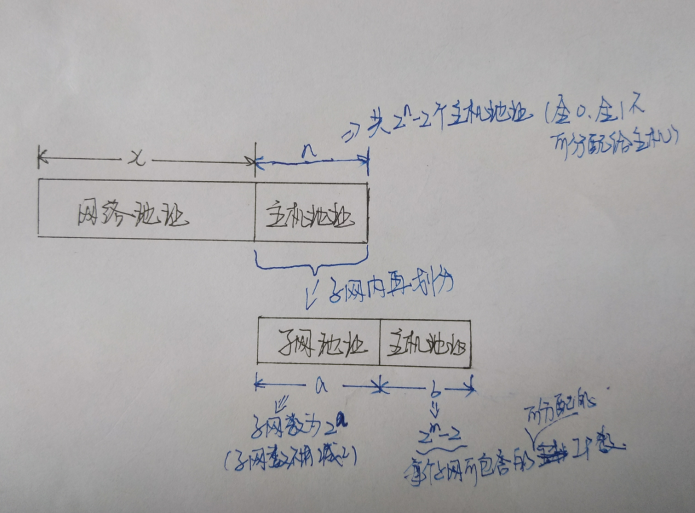 ⇒ 共2ⁿ-2个主机地址 (全0、全1不
可分配给主机)
x
n
网络地址
主机地址
子网内再划分
子网地址
主机地址
a
b
子网数为2ᵃ
(子网数不用减2)
2ⁿ-2
可分配的
每个子网所包含的 IP数